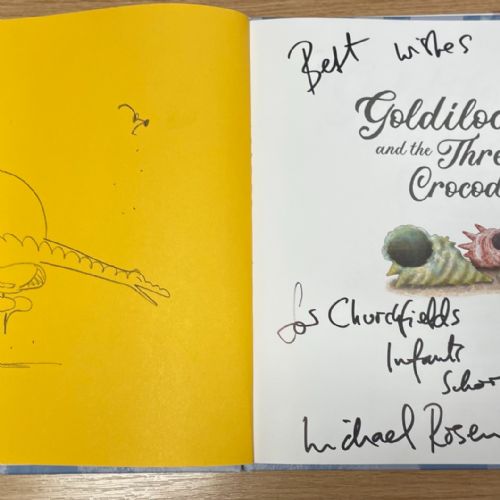 Best wishes
Goldiloc
and the Thre
Crocod
for Churchfields
Infants
School
Michael Rosen